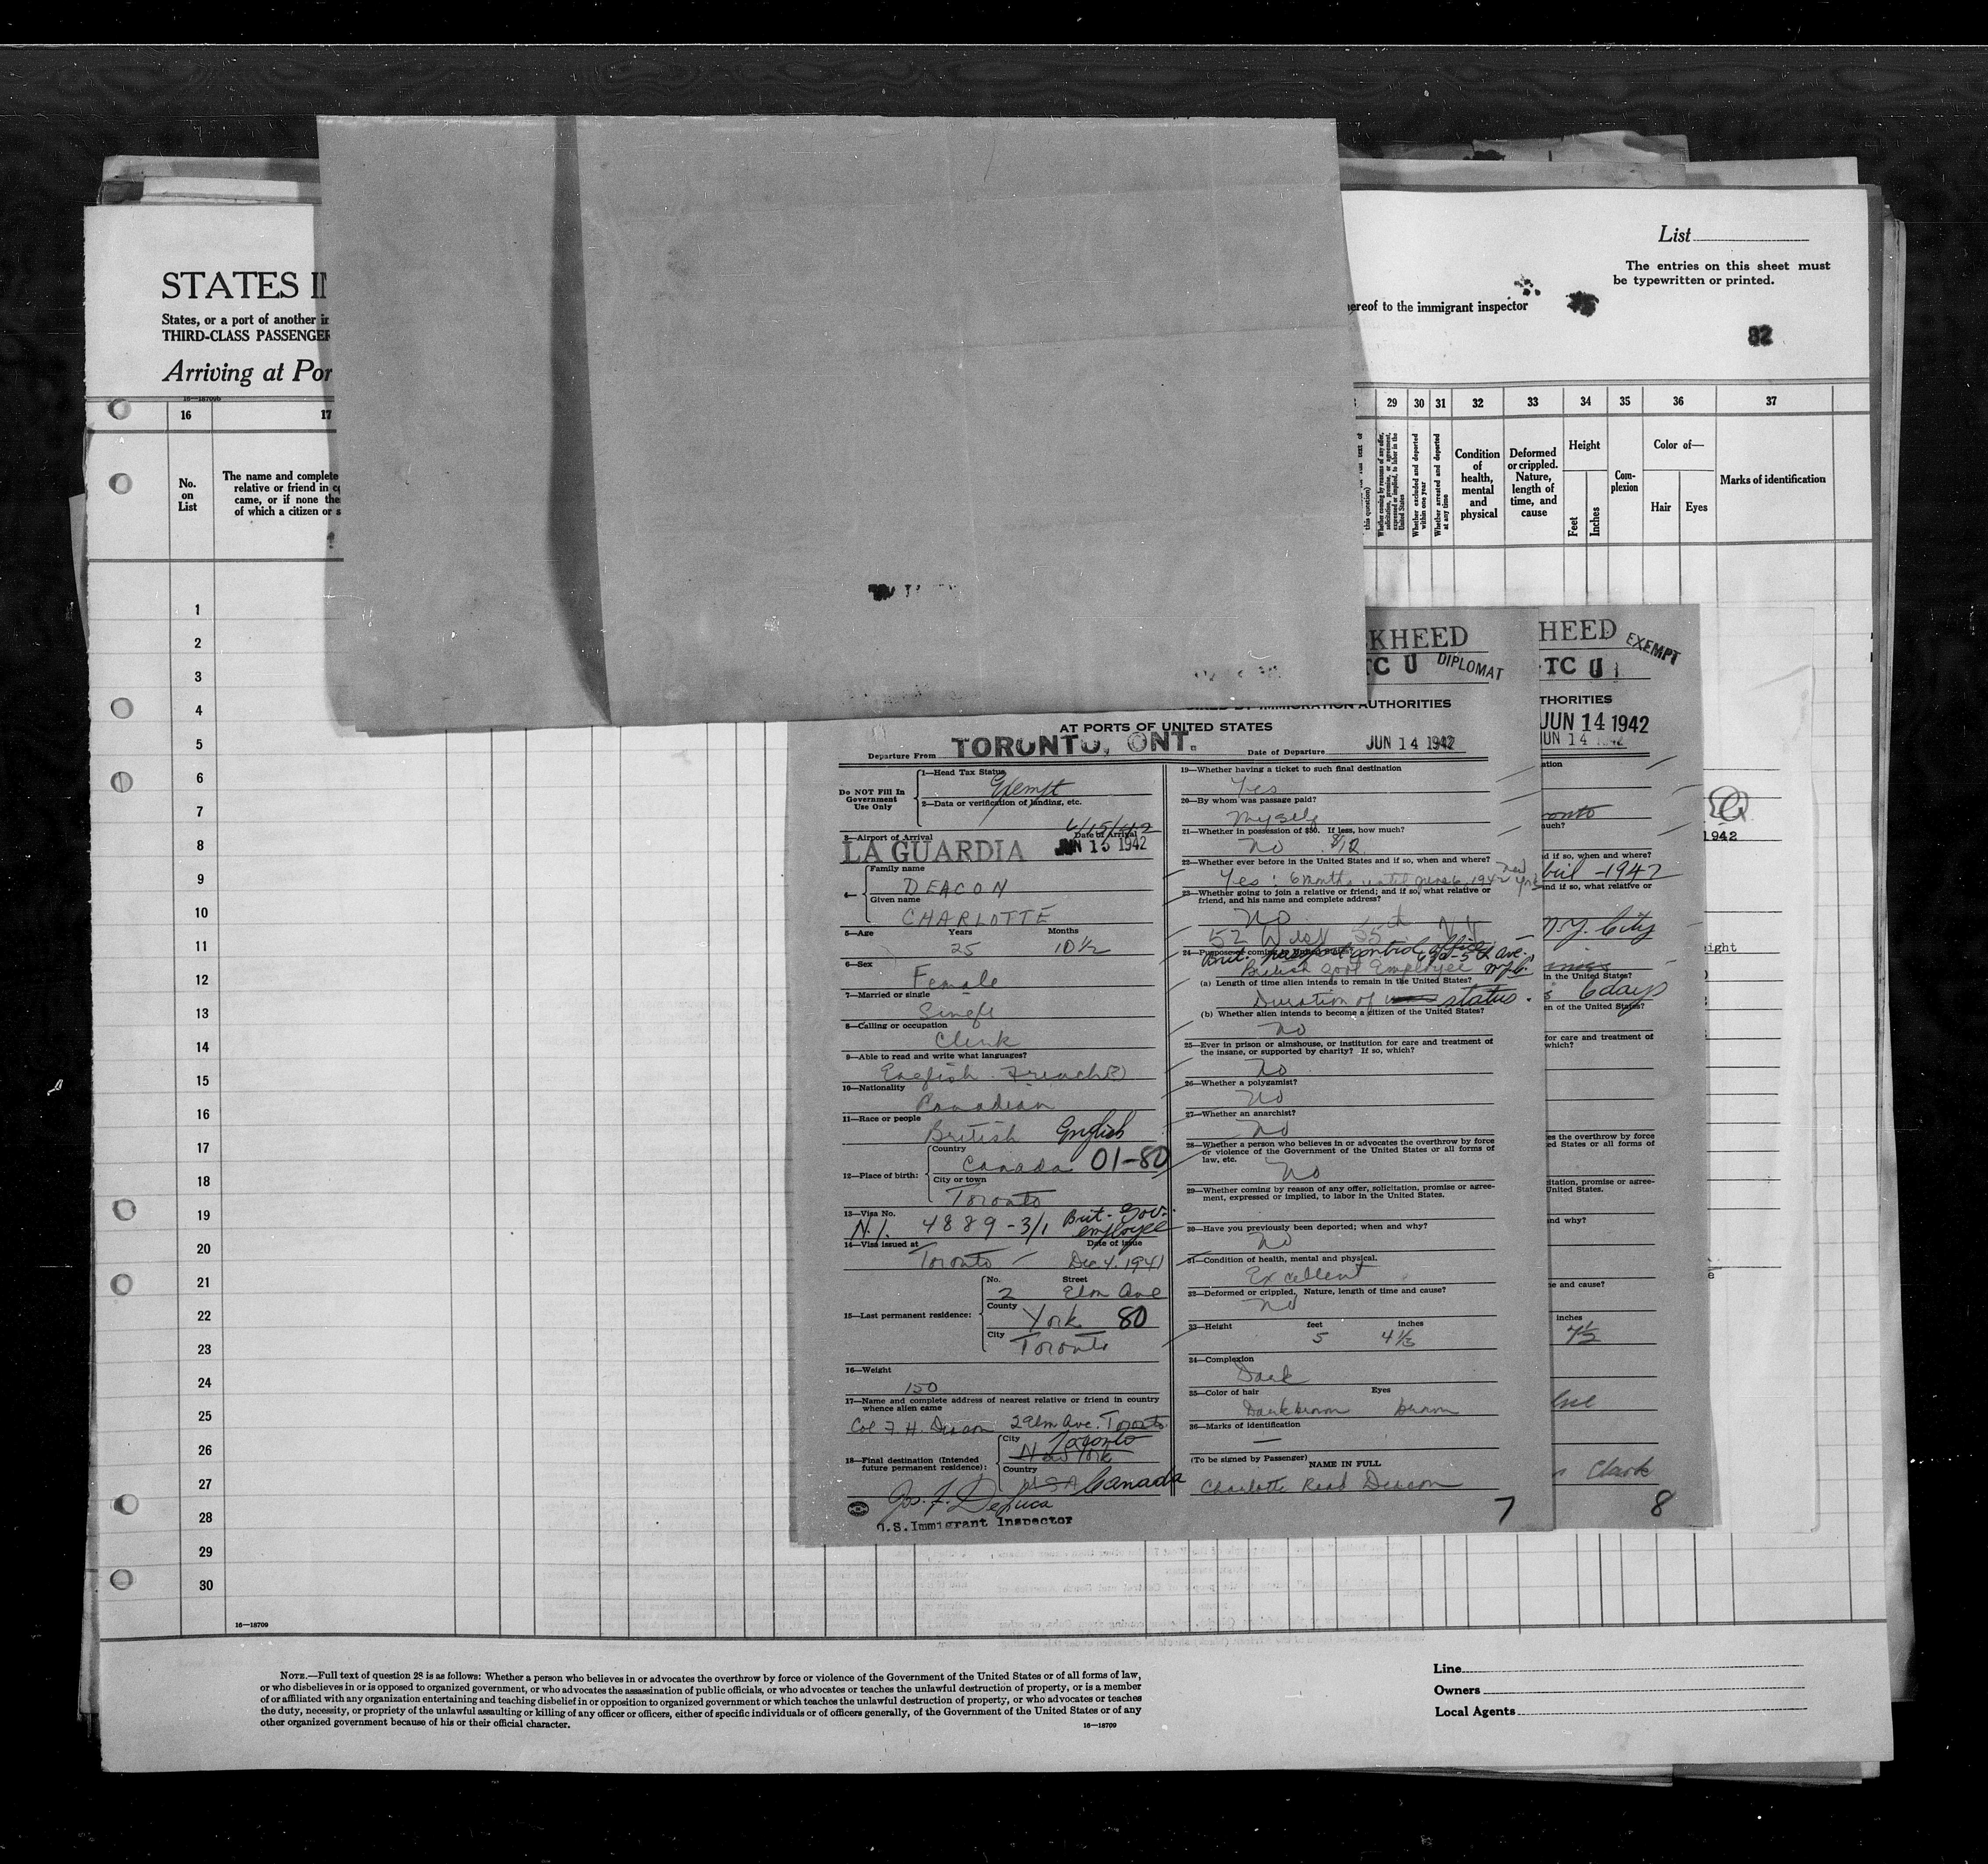 List
The entries on this sheet must
be typewritten or printed.
STATES IN
States, or a port of another
THIRD-CLASS PASSENGER
Arriving at Por
hereof to the immigrant inspector
82
16 17 29 30 31 32 33 34 35 36 37
No.
on
List
The name and complete
relative or friend in
came, or if none
of which a citizen or s
this question)
Whether coming by reasons of any offer,
solicitation, promise, or agreement,
expressed or implied, to labor in the
United States
Whether excluded and deported
within one year
Whether arrested and deported
at any time
Condition
of
health,
mental
and
physical
Deformed
or crippled.
Nature,
length of
time, and
cause
Height
Feet
Inches
Com-
plexion
Color of—
Hair Eyes
Marks of identification
1
2
3
4
5
6
7
8
9
10
11
12
13
14
15
16
17
18
19
20
21
22
23
24
25
26
27
28
29
30
16—18709
KHEED
TC U DIPLOMAT
IMMIGRATION AUTHORITIES
AT PORTS OF UNITED STATES
Departure From TORONTO, ONT. Date of Departure JUN 14 1942
Do NOT Fill In
Government
Use Only
1—Head Tax Status
Exempt
2—Data or verification of landing, etc.
6/15/42
3—Airport of Arrival Date of Arrival
LA GUARDIA JUN 15 1942
4—
Family name
DEACON
Given name
CHARLOTTE
5—Age Years Months
25 10½
6—Sex
Female
7—Married or single
Single
8—Calling or occupation
Clerk
9—Able to read and write what languages?
English French(?)
10—Nationality
Canadian
11—Race or people
British English
12—Place of birth:
Country
Canada 01-80
City or town
Toronto
13—Visa No.
N.I. 4889-3/1 Brit-Gov.
employee
14—Visa issued at Date of issue
Toronto Dec 4. 1941
15—Last permanent residence:
No. Street
2 Elm Ave
County
York 80
City
Toronto
16—Weight
150
17—Name and complete address of nearest relative or friend in country
whence alien came
Col F. H. Deacon 2 Elm Ave. Toronto
18—Final destination (Intended
future permanent residence):
City
Toronto
New York
Country
USA Canada
Jos. F. DeLuca
U.S. Immigrant Inspector
19—Whether having a ticket to such final destination
Yes
20—By whom was passage paid?
Myself
21—Whether in possession of $50. If less, how much?
No $12
22—Whether ever before in the United States and if so, when and where?
Yes: 6 months until June 6, 1942 New York
23—Whether going to join a relative or friend; and if so, what relative or
friend, and his name and complete address?
No
52 West 55th NY
24—Purpose of coming to United States
Brit. Passport control office 5th ave.
British govt Employee N.Y.C.
(a) Length of time alien intends to remain in the United States?
Duration of status.
(b) Whether alien intends to become a citizen of the United States?
No
25—Ever in prison or almshouse, or institution for care and treatment of
the insane, or supported by charity? If so, which?
No
26—Whether a polygamist?
No
27—Whether an anarchist?
No
28—Whether a person who believes in or advocates the overthrow by force
or violence of the Government of the United States or all forms of
law, etc.
No
29—Whether coming by reason of any offer, solicitation, promise or agree-
ment, expressed or implied, to labor in the United States.
30—Have you previously been deported; when and why?
No
31—Condition of health, mental and physical.
Excellent
32—Deformed or crippled. Nature, length of time and cause?
No
33—Height feet inches
5 4½
34—Complexion
Dark
35—Color of hair Eyes
Dark brown brown
36—Marks of identification
—
(To be signed by Passenger)
NAME IN FULL
Charlotte Read Deacon
7
HEED EXEMPT
TC U
THORITIES
JUN 14 1942
JUN 14 1942
ation
ronto
uch?
d if so, when and where?
April -1942
and if so, what relative or
N.Y. City
in the United States?
6 days
en of the United States?
for care and treatment of
which?
es the overthrow by force
ed States or all forms of
citation, promise or agree-
United States.
nd why?
e and cause?
inches
7½
Clark
8
1942
eight
NOTE.—Full text of question 28 is as follows: Whether a person who believes in or advocates the overthrow by force or violence of the Government of the United States or of all forms of law,
or who disbelieves in or is opposed to organized government, or who advocates the assassination of public officials, or who advocates or teaches the unlawful destruction of property, or is a member
of or affiliated with any organization entertaining and teaching disbelief in or opposition to organized government or which teaches the unlawful destruction of property, or who advocates or teaches
the duty, necessity, or propriety of the unlawful assaulting or killing of any officer or officers, either of specific individuals or of officers generally, of the Government of the United States or of any
other organized government because of his or their official character.
16—18709
Line
Owners
Local Agents